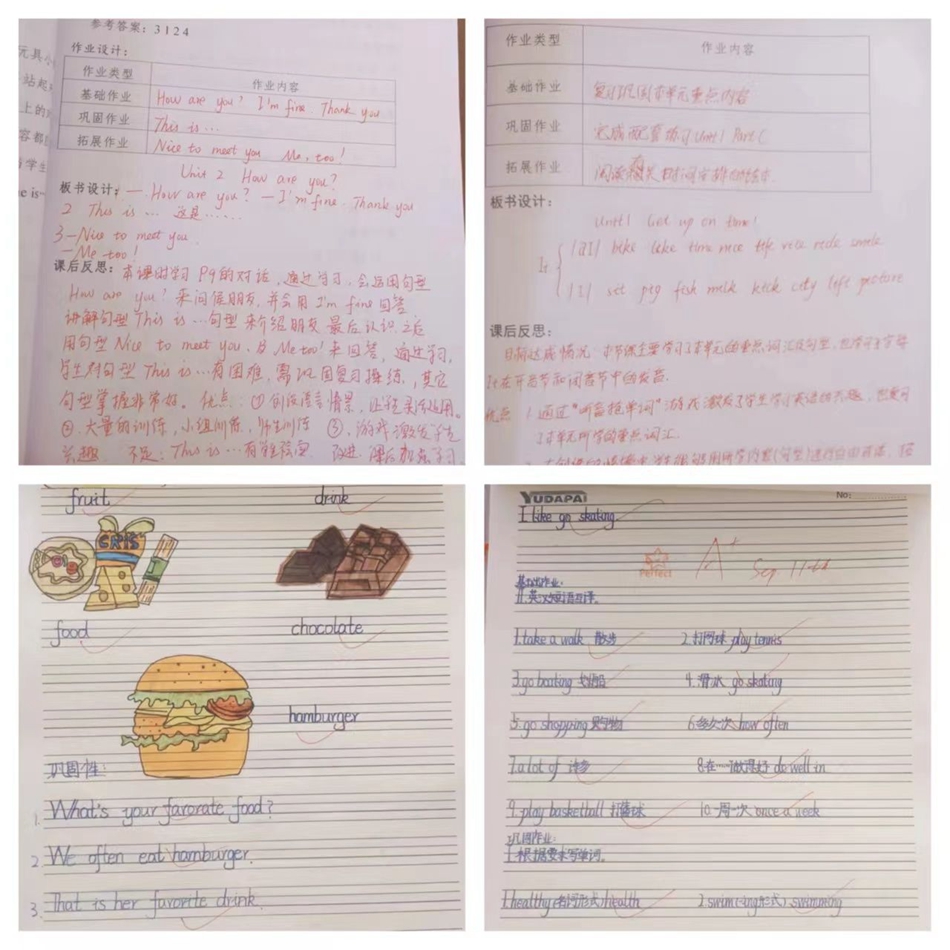 参考答案：3124
作业设计：
作业类型 作业内容
基础作业 How are you? I'm fine. Thank you
巩固作业 This is ...
拓展作业 Nice to meet you Me, too!
Unit 2 How are you?
板书设计：一. How are you? — I'm fine. Thank you
2 This is ... 这是......
3 —Nice to meet you.
—Me too!
课后反思：本课时学习 P9的对话，通过学习，会运用句型
How are you? 来问候朋友，并会用 I'm fine 回答
讲解句型 This is ...句型来介绍朋友 最后认识之后
用句型 Nice to meet you. 及 Me too! 来回答，通过学习，
学生对句型 This is ...有困难，需巩固复习操练，其它
句型掌握非常好。优点：①创设语言情景，让孩子运用。
②.大量的训练，小组训练，师生训练 ③.游戏激发学生
兴趣 不足：This is ...有些 改进 课后 学习
作业类型 作业内容
基础作业 复习巩固本单元重点内容
巩固作业 完成配套练习 Unit1 Part C
拓展作业 阅读有关时间安排
板书设计：
Unit1 Get up on time!
bike like time nice rice ride smile
sit pig fish milk kick city left picture
课后反思：
目标达成情况：本节课主要学习了本单元的重点词汇及句型，
在开音节和闭音节中的发音.
优点：1.通过“听音抢单词”游戏激发了学生学习英语的兴趣，
了本单元所学的重点词汇.
fruit drink
CRIS
food chocolate
hamburger
巩固性：
1. What's your favorate food?
2 We often eat hamburger.
3. That is her favorite drink.
YUDAPAI No:
I like go skating.
PERFECT A+ Sep. 11th
基础作业：
11.英汉短语互译。
1.take a walk 散步 2.打网球 play tennis
3.go boating 划船 4.滑冰 go skating
5.go shopping 购物 6.多久一次 how often
7.a lot of 许多 8.在……做得好 do well in
9.play basketball 打篮球 10.一周一次 once a week
巩固作业：
1.根据要求写单词。
1.healthy(名词形式) health 2.swim(-ing形式) swimming